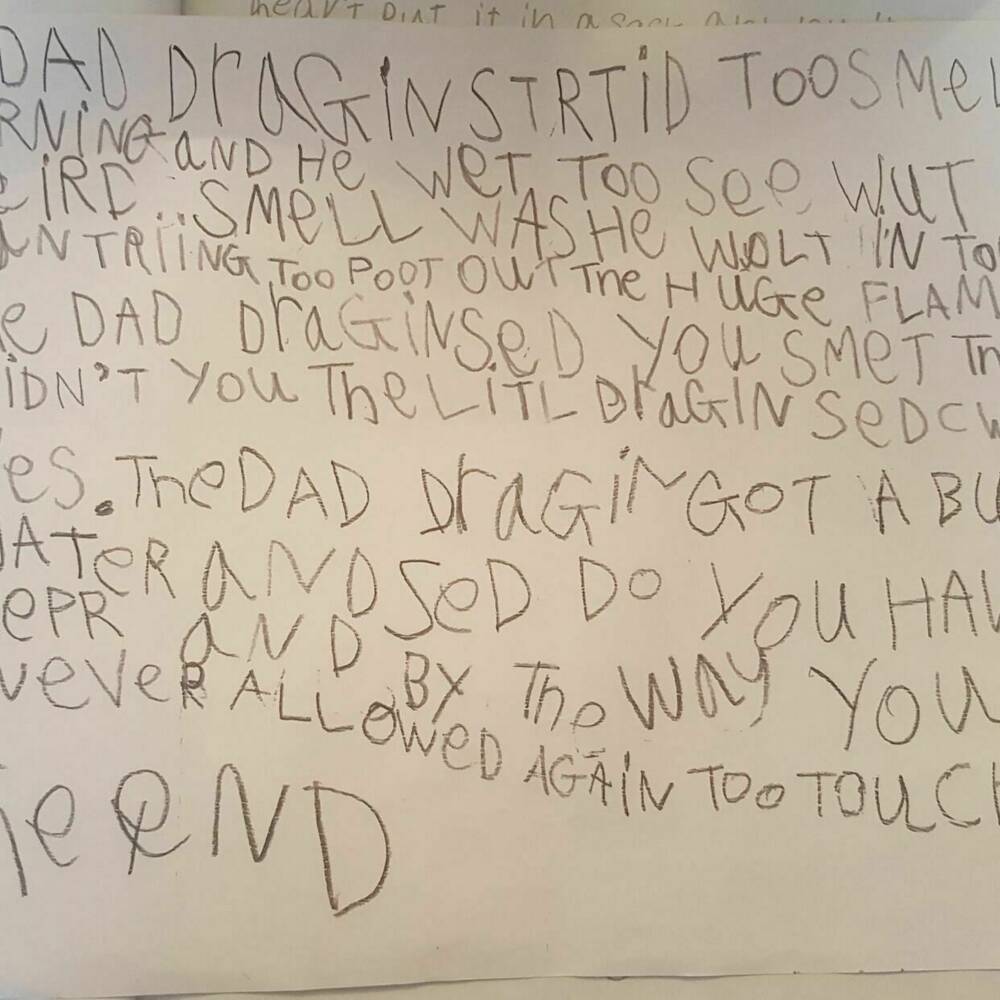 heart put it in a
DAD DraGiN STRTiD TOO SMeL
RNiNG aND He WeT TOO See WUT
eiRD SMeLL WAS He WOLT iN TO
aN TRiiNG TOO POOT OUT The HUGe FLAM
e DAD DraGiN SeD YOU SMeT Th
iDN'T YOU The LiTL DraGiN SeD
es. The DAD DraGiN GOT A BU
ATeR AND SeD DO YOU HAV
ePR AND BY The WAY YOU
NeVeR ALLOWeD AGAiN TOO TOUCH
he eND